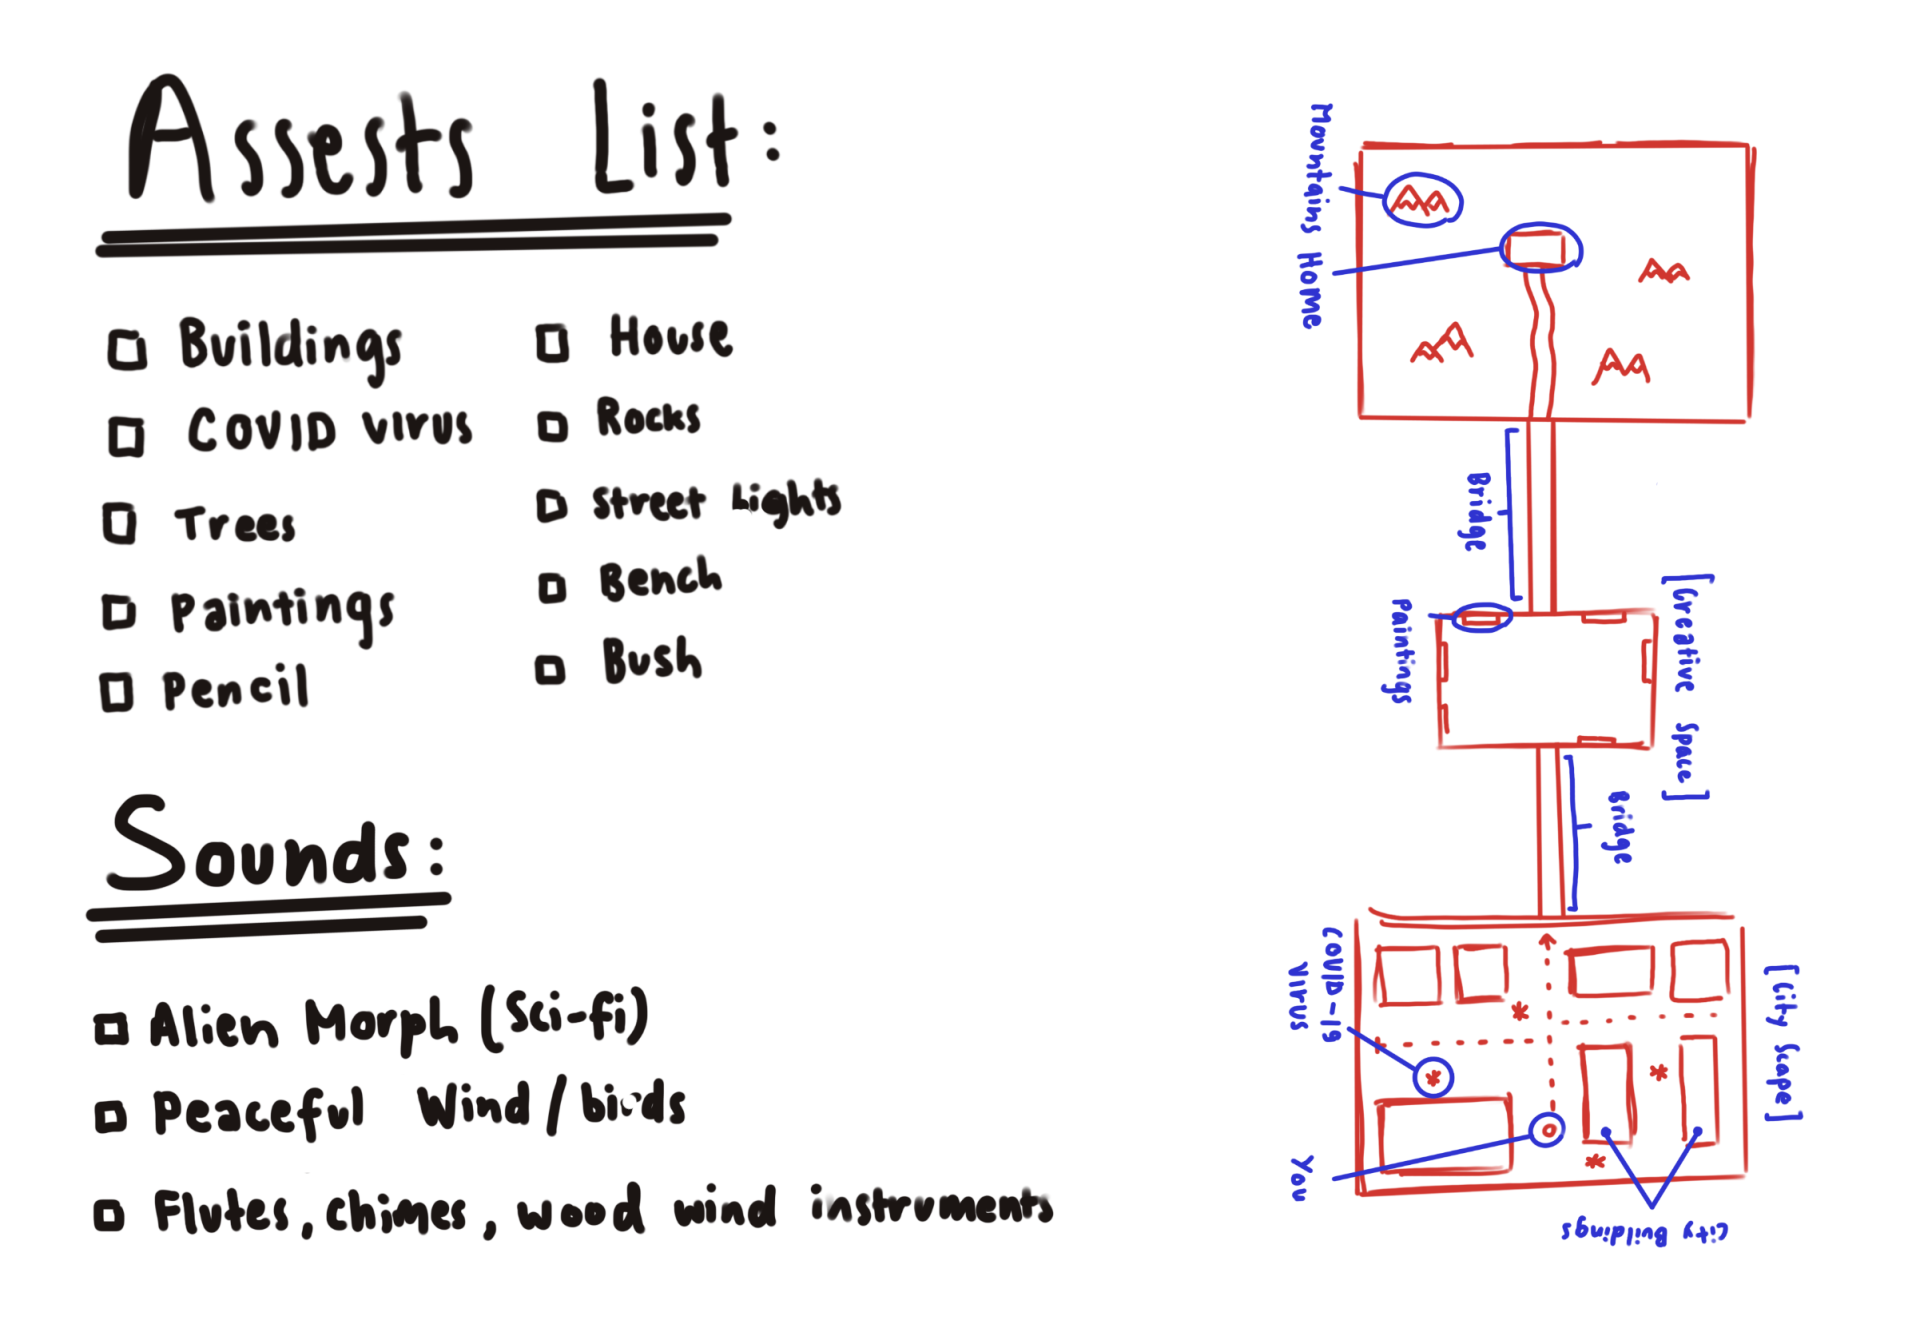 Assests List:
Buildings
COVID virus
Trees
Paintings
Pencil
House
Rocks
Street Lights
Bench
Bush
Sounds:
Alien Morph (Sci-fi)
Peaceful Wind/birds
Flutes, chimes, wood wind instruments
Mountains
Home
Bridge
[Creative Space]
Paintings
Bridge
[City Scape]
COVID-19
virus
You
City Buildings